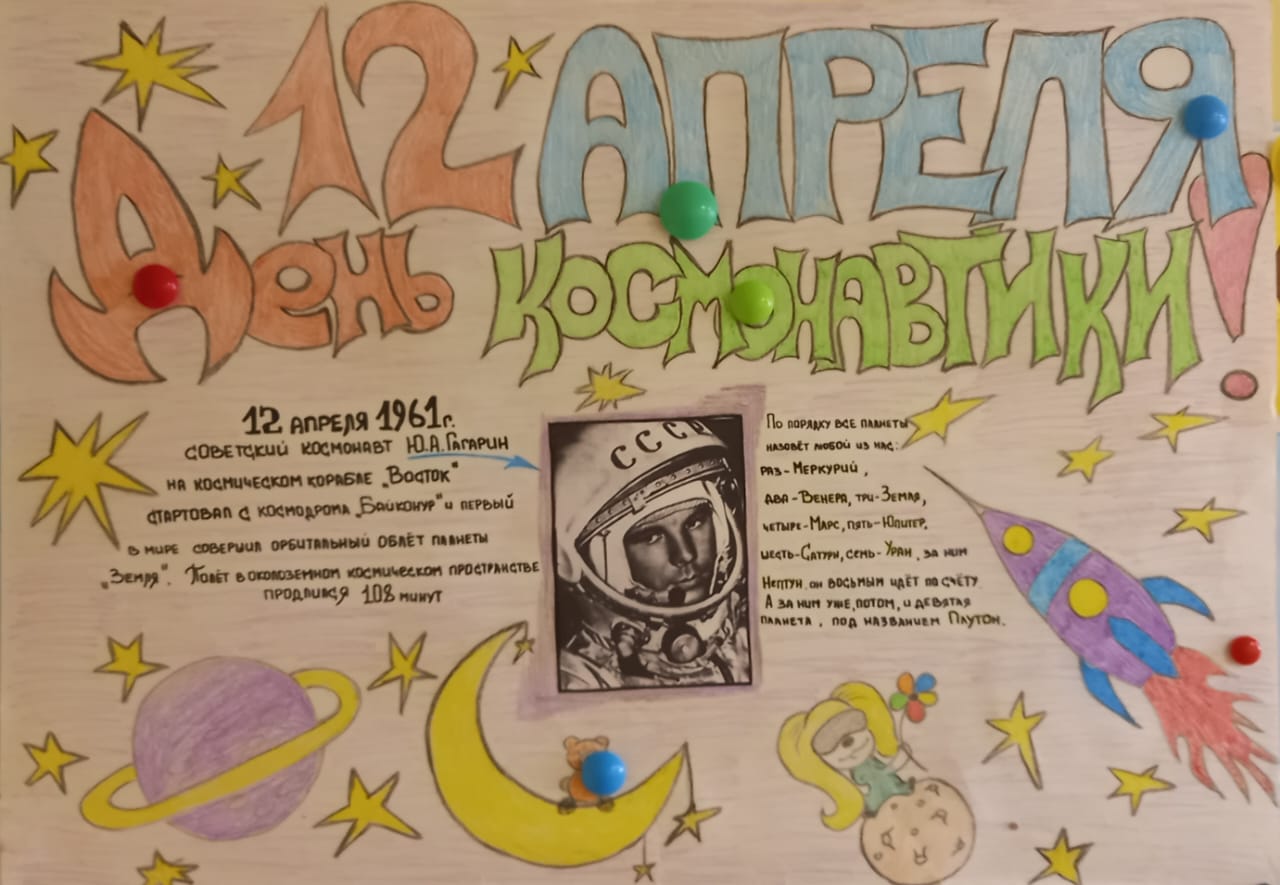 12 АПРЕЛЯ
День КОСМОНАВТИКИ!
12 АПРЕЛЯ 1961г.
СОВЕТСКИЙ КОСМОНАВТ Ю.А.ГАГАРИН
НА КОСМИЧЕСКОМ КОРАБЛЕ „ВОСТОК"
СТАРТОВАЛ С КОСМОДРОМА „БАЙКОНУР" И ПЕРВЫЙ
В МИРЕ СОВЕРШИЛ ОРБИТАЛЬНЫЙ ОБЛЁТ ПЛАНЕТЫ
„ЗЕМЛЯ". ПОЛЁТ В ОКОЛОЗЕМНОМ КОСМИЧЕСКОМ ПРОСТРАНСТВЕ
ПРОДЛИЛСЯ 108 МИНУТ
СССР
ПО ПОРЯДКУ ВСЕ ПЛАНЕТЫ
НАЗОВЁТ ЛЮБОЙ ИЗ НАС:
РАЗ-МЕРКУРИЙ,
ДВА-ВЕНЕРА, ТРИ-ЗЕМЛЯ,
ЧЕТЫРЕ-МАРС, ПЯТЬ-ЮПИТЕР,
ШЕСТЬ-САТУРН, СЕМЬ-УРАН, ЗА НИМ
НЕПТУН. ОН ВОСЬМЫМ ИДЁТ ПО СЧЁТУ.
А ЗА НИМ УЖЕ, ПОТОМ, И ДЕВЯТАЯ
ПЛАНЕТА, ПОД НАЗВАНИЕМ ПЛУТОН.